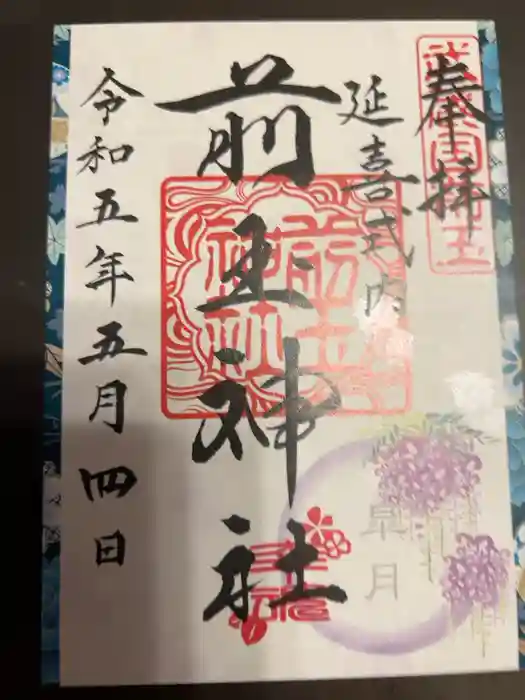 奉拝
延喜式内
前玉神社
前玉神社
皐月
令和五年五月四日